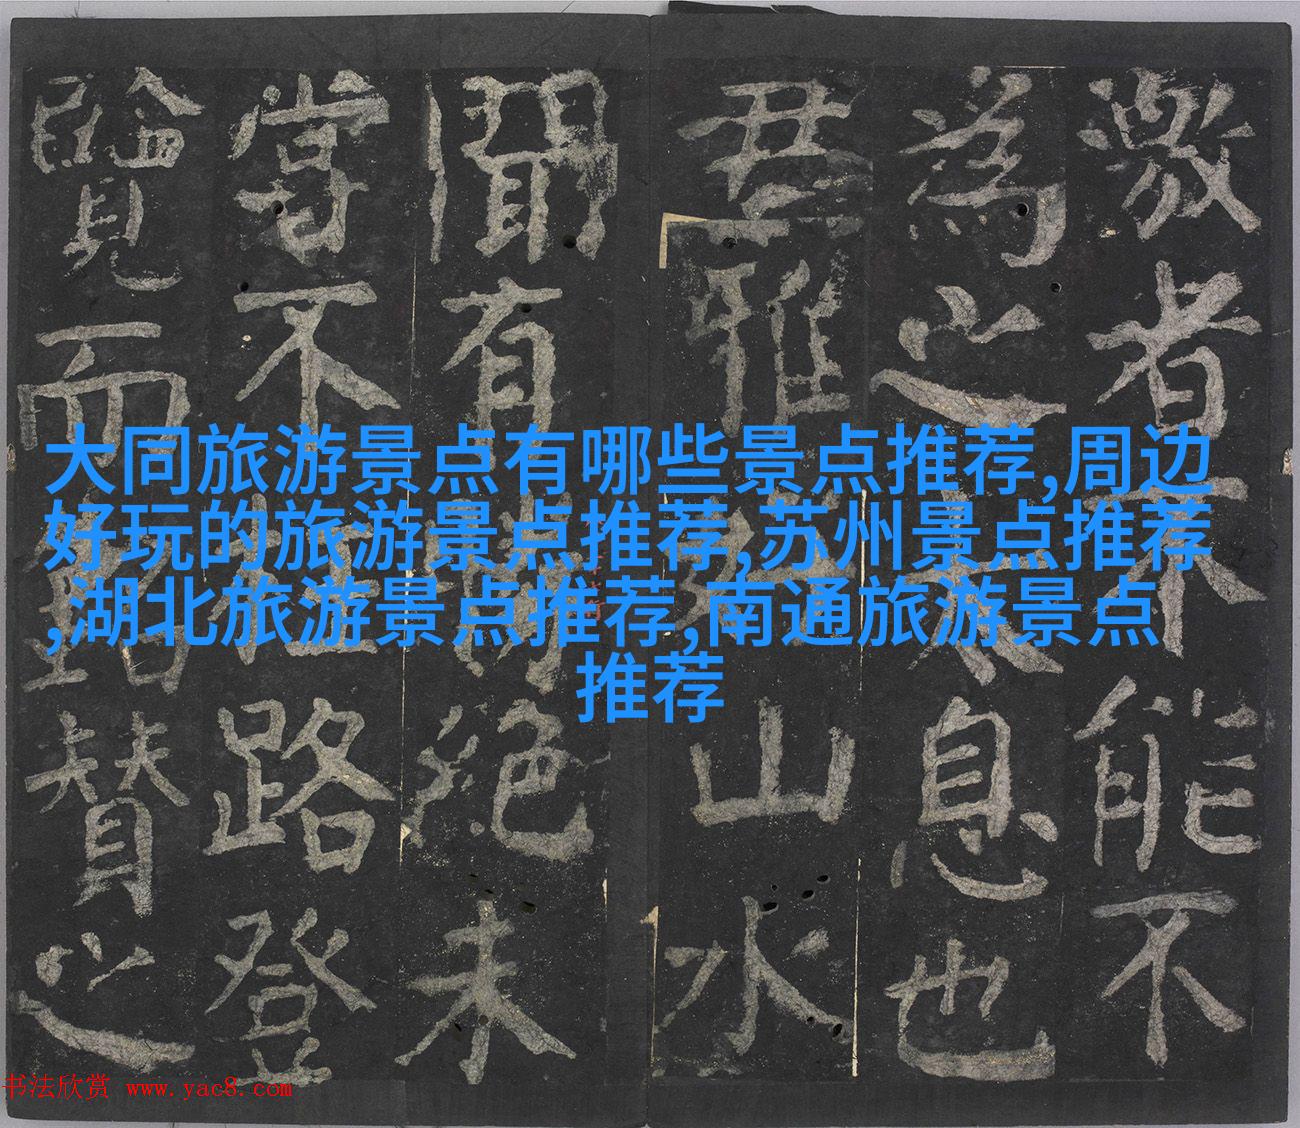 激者不能不
爲之太息也
君雅山水
聞有絕未
嘗不路登
覽而贊之
大同旅游景点有哪些景点推荐,周边
好玩的旅游景点推荐,苏州景点推荐
,湖北旅游景点推荐,南通旅游景点
推荐
书法欣赏 www.yac8.com